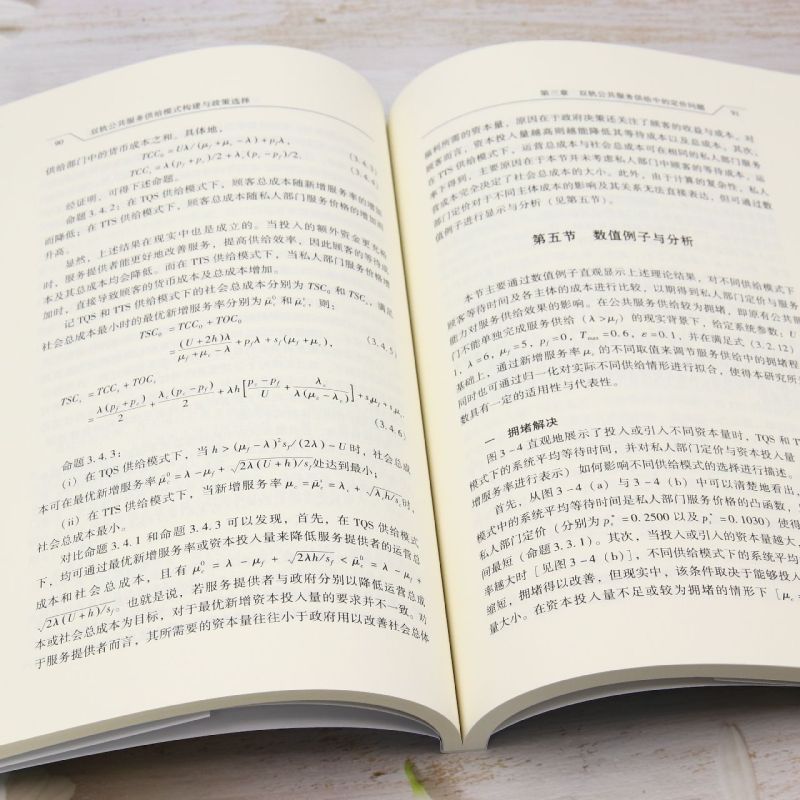 90 双轨公共服务供给模式构建与政策选择
供给部门中的货币成本之和。具体地,
TCC₀ = Uλ/(μf + μe − λ) + pfλ, (3.4.3)
TCCs = λ(pf + ps)/2 + λs(ps − pf)/2. (3.4.4)
经证明,可得下述命题。
命题 3.4.2:在 TQS 供给模式下,顾客总成本随新增服务率的增加
而降低;在 TTS 供给模式下,顾客总成本随私人部门服务价格的增加而
升高。
显然,上述结果在现实中也是成立的。当投入的额外资金更充裕
时,服务提供者能更好地改善服务,提高供给效率,因此顾客的等待成
本及其总成本均会降低。而在 TTS 供给模式下,当私人部门服务价格增
加时,直接导致顾客的货币成本及总成本增加。
记 TQS 和 TTS 供给模式下的社会总成本分别为 TSC₀ 和 TSCs,满足
社会总成本最小时的最优新增服务率分别为
则:
TSC₀ = TCC₀ + TOC₀
= (U + 2h)λ/(μf + μe − λ) + pfλ + sf(μf + μe), (3.4.5)
TSCs = TCCs + TOCs
(3.4.6)
命题 3.4.3:
(i) 在 TQS 供给模式下,当 h > (μf − λ)²sf/(2λ) − U 时,社会总成
本可在最优新增服务率
处达到最小;
(ii) 在 TTS 供给模式下,当新增服务率
时,
社会总成本最小。
对比命题 3.4.1 和命题 3.4.3 可以发现,首先,在 TQS 供给模式
下,均可通过最优新增服务率或资本投入量来降低服务提供者的运营总
成本和社会总成本,且有
也就是说,若服务提供者与政府分别以降低运营总成
本或社会总成本为目标,对于最优新增资本投入量的要求并不一致。对
于服务提供者而言,其所需要的资本量往往小于政府用以改善社会总体
第三章 双轨公共服务供给中的定价问题 91
福利所需的资本量,原因在于政府决策还关注了顾客的收益与成本。对
顾客而言,资本投入量越高则越能降低其等待成本以及总成本。其次,
在 TTS 供给模式下,运营总成本与社会总成本可在相同的私人部门服务
率下得到,主要原因在于本节并未考虑私人部门中顾客的等待成本,运
营成本完全决定了社会总成本的大小。此外,由于计算的复杂性,私人
部门定价对于不同主体成本的影响及其关系无法直接表达,但可通过数
值例子进行显示与分析(见第五节)。
第五节 数值例子与分析
本节主要通过数值例子直观显示上述理论结果,对不同供给模式下
顾客等待时间及各主体的成本进行比较,以期得到私人部门定价与服务
能力对服务供给效果的影响。在公共服务供给较为拥堵,即原有公共部
门不能单独完成服务供给 (λ > μf) 的现实背景下,给定系统参数:U
1, λ = 6, μf = 5, pf = 0, Tmax = 0.6, ε = 0.1,并在满足式 (3.2.12)
基础上,通过新增服务率 μe 的不同取值来调节服务供给中的拥堵程
同时也可通过归一化对实际不同供给情形进行拟合,使得本研究所
数具有一定的适用性与代表性。
一 拥堵解决
图 3-4 直观地展示了投入或引入不同资本量时,TQS 和 T
模式下的系统平均等待时间,并对私人部门定价与资本投入量
增服务率进行表示)如何影响不同供给模式的选择进行描述。
首先,从图 3-4 (a) 与 3-4 (b) 中可以清楚地看出,
模式中的系统平均等待时间是私人部门服务价格的凸函数,
私人部门定价(分别为 ps* = 0.2500 以及 ps* = 0.1030)使得
间最短(命题 3.3.1)。其次,当投入或引入的资本量越大,
率越大时 [见图 3-4 (b)],不同供给模式下的系统平均
缩短,拥堵得以改善,但现实中,该条件取决于能够投入
量大小。在资本投入量不足或较为拥堵的情形下 [μe =